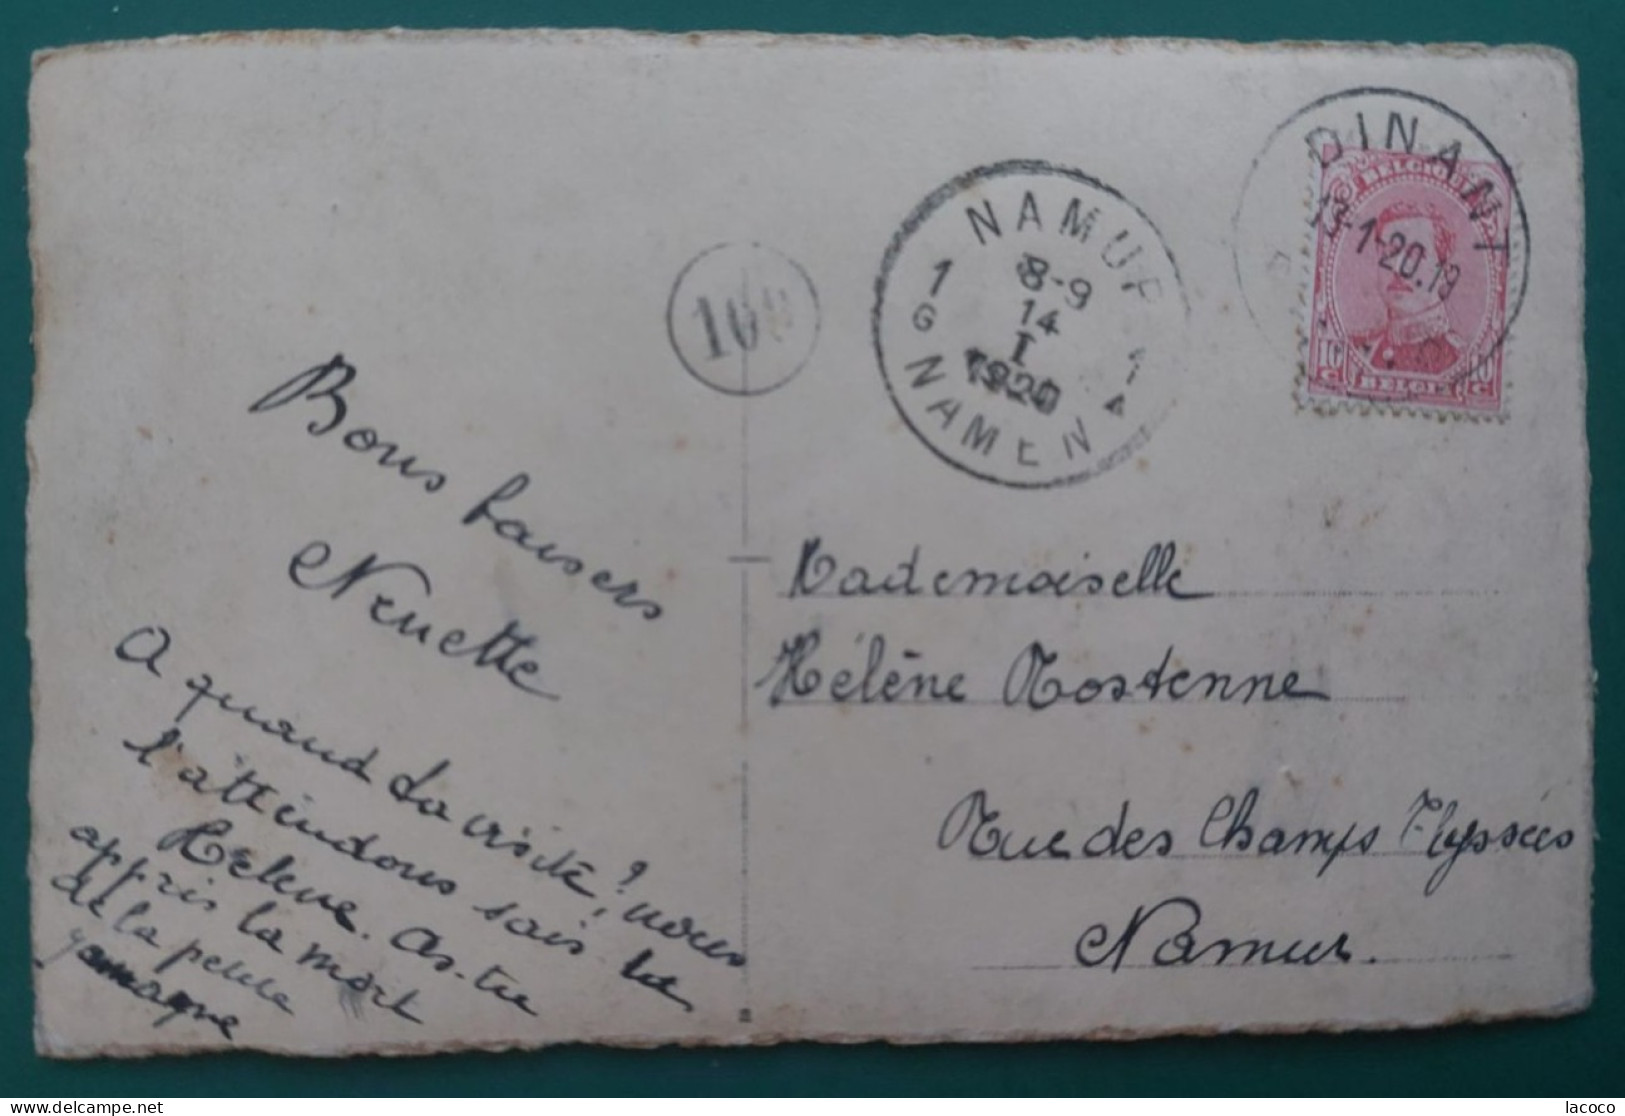 Bons baisers
Nenette
A quand la visite, ? nous
l'attendons sais tu
Helene. As-tu
appris la mort
de la petite
100
NAMUR
1 8-9 1
G 14
I
1920
NAMEN
DINANT
13-1-20.19
BELGIQUE
10 c 10 c
BELGIË
Mademoiselle
Hélène Mostenne
Rue des Champs Elyssées
Namur.
lacoco